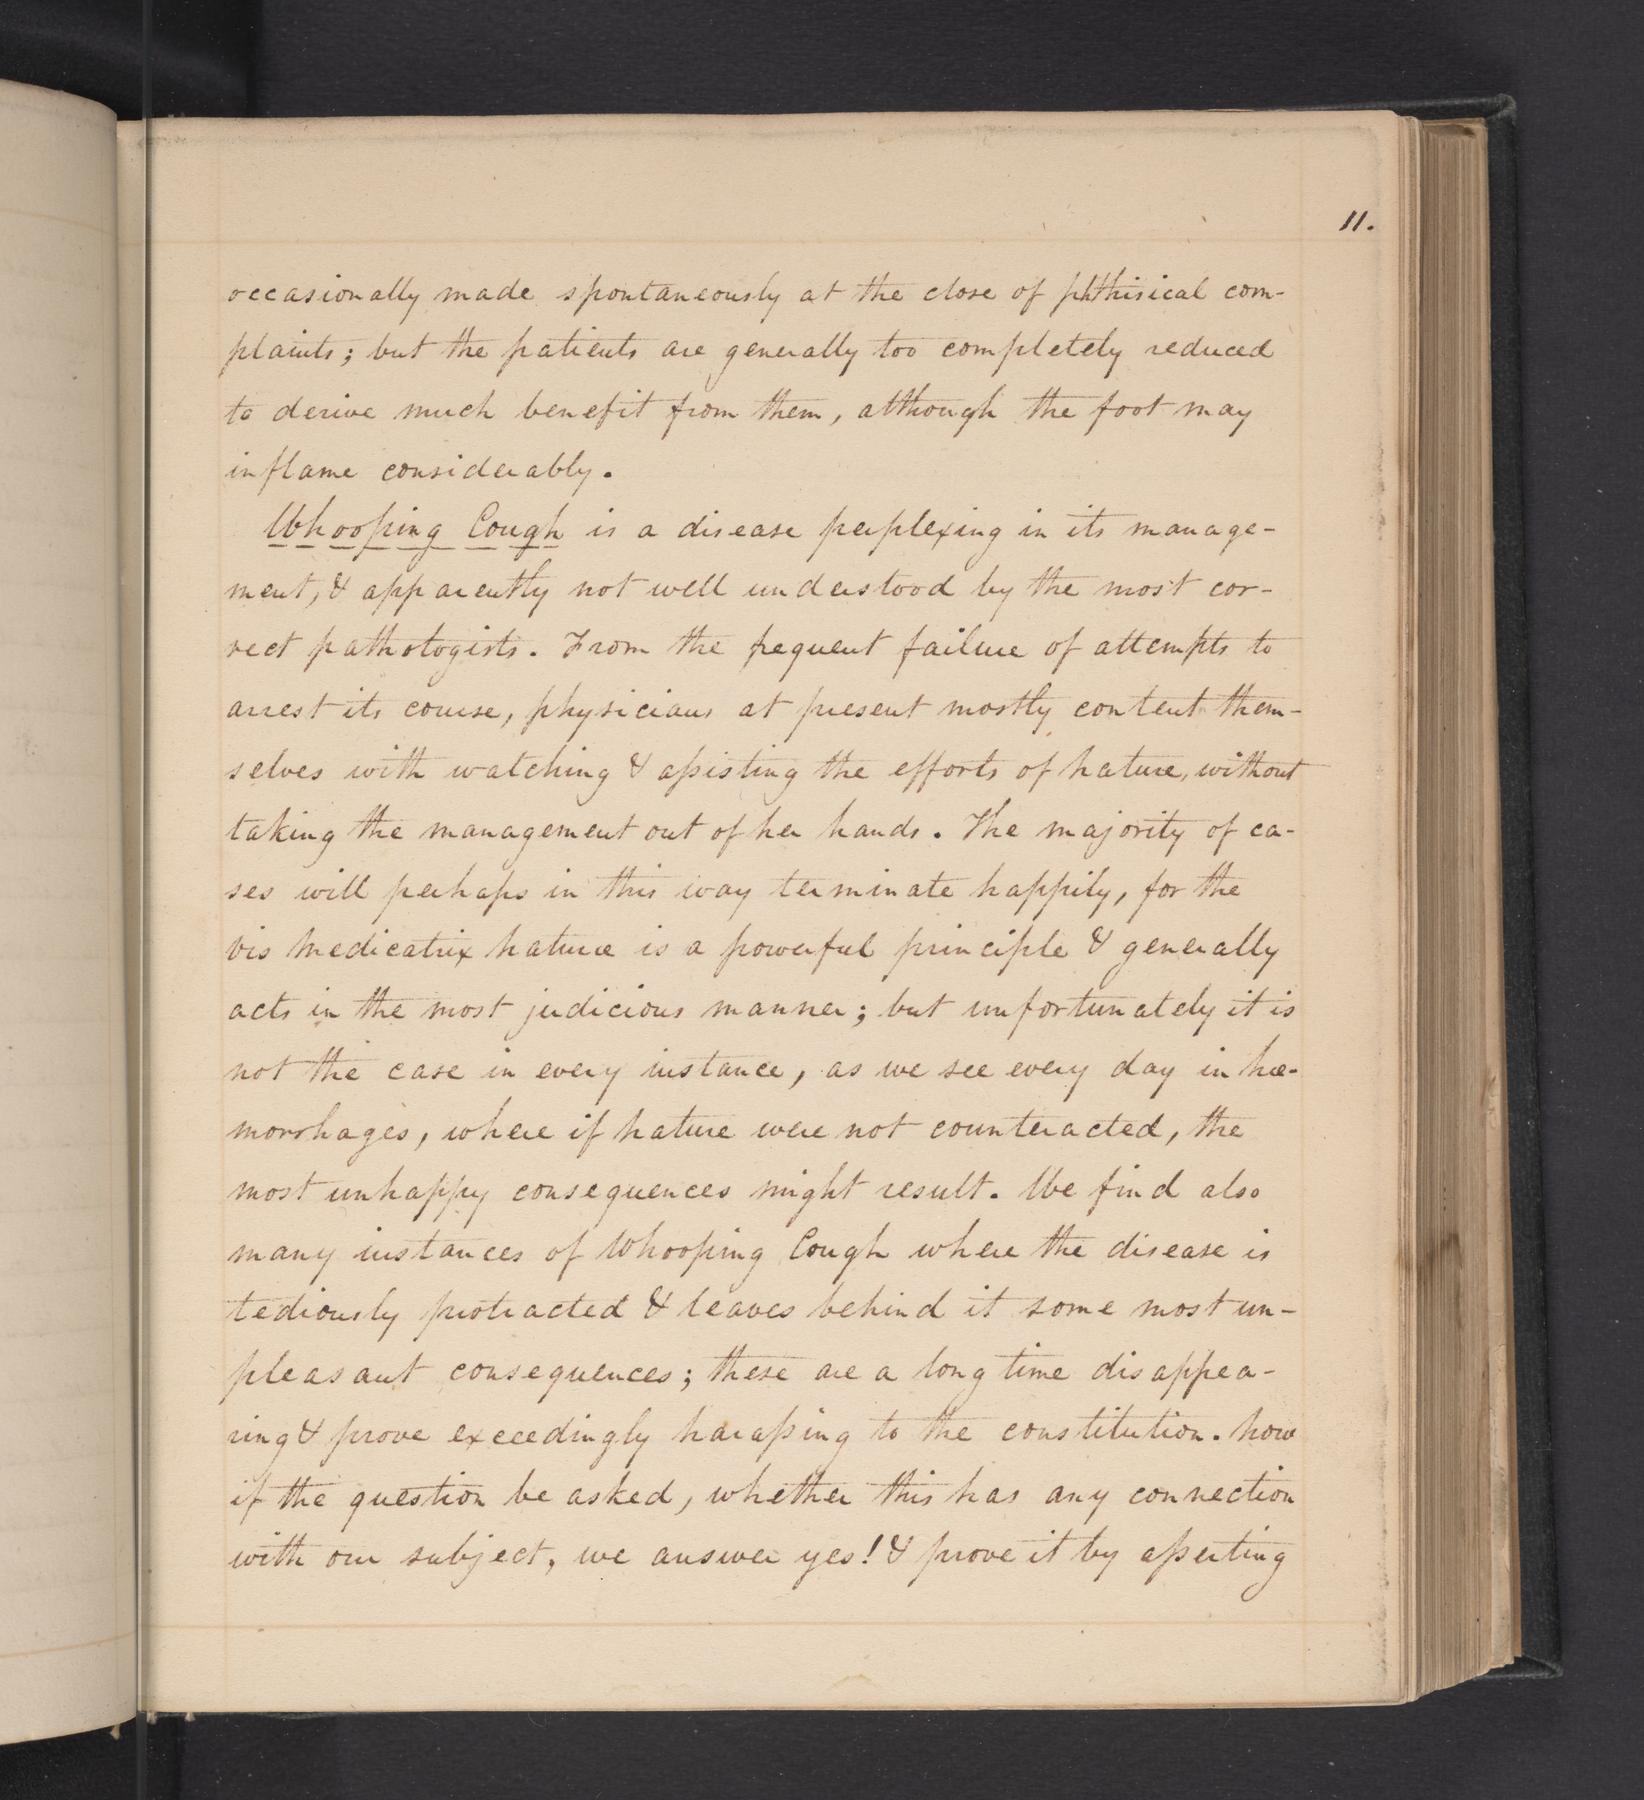 11.
occasionally made spontaneously at the close of phthisical com-
plaints; but the patients are generally too completely reduced
to derive much benefit from them, although the foot may
inflame considerably.
Whooping Cough is a disease perplexing in its manage-
ment, & apparently not well understood by the most cor-
rect pathologists. From the frequent failure of attempts to
arrest its course, physicians at present mostly content them-
selves with watching & assisting the efforts of nature, without
taking the management out of her hands. The majority of ca-
ses will perhaps in this way terminate happily, for the
vis medicatrix naturæ is a powerful principle & generally
acts in the most judicious manner; but unfortunately it is
not the case in every instance, as we see every day in hæ-
morrhages, where if nature were not counteracted, the
most unhappy consequences might result. We find also
many instances of Whooping Cough where the disease is
tediously protracted & leaves behind it some most un-
pleasant consequences; these are a long time disappea-
ring & prove exceedingly harassing to the constitution. Now
if the question be asked, whether this has any connection
with our subject, we answer yes! & prove it by asserting